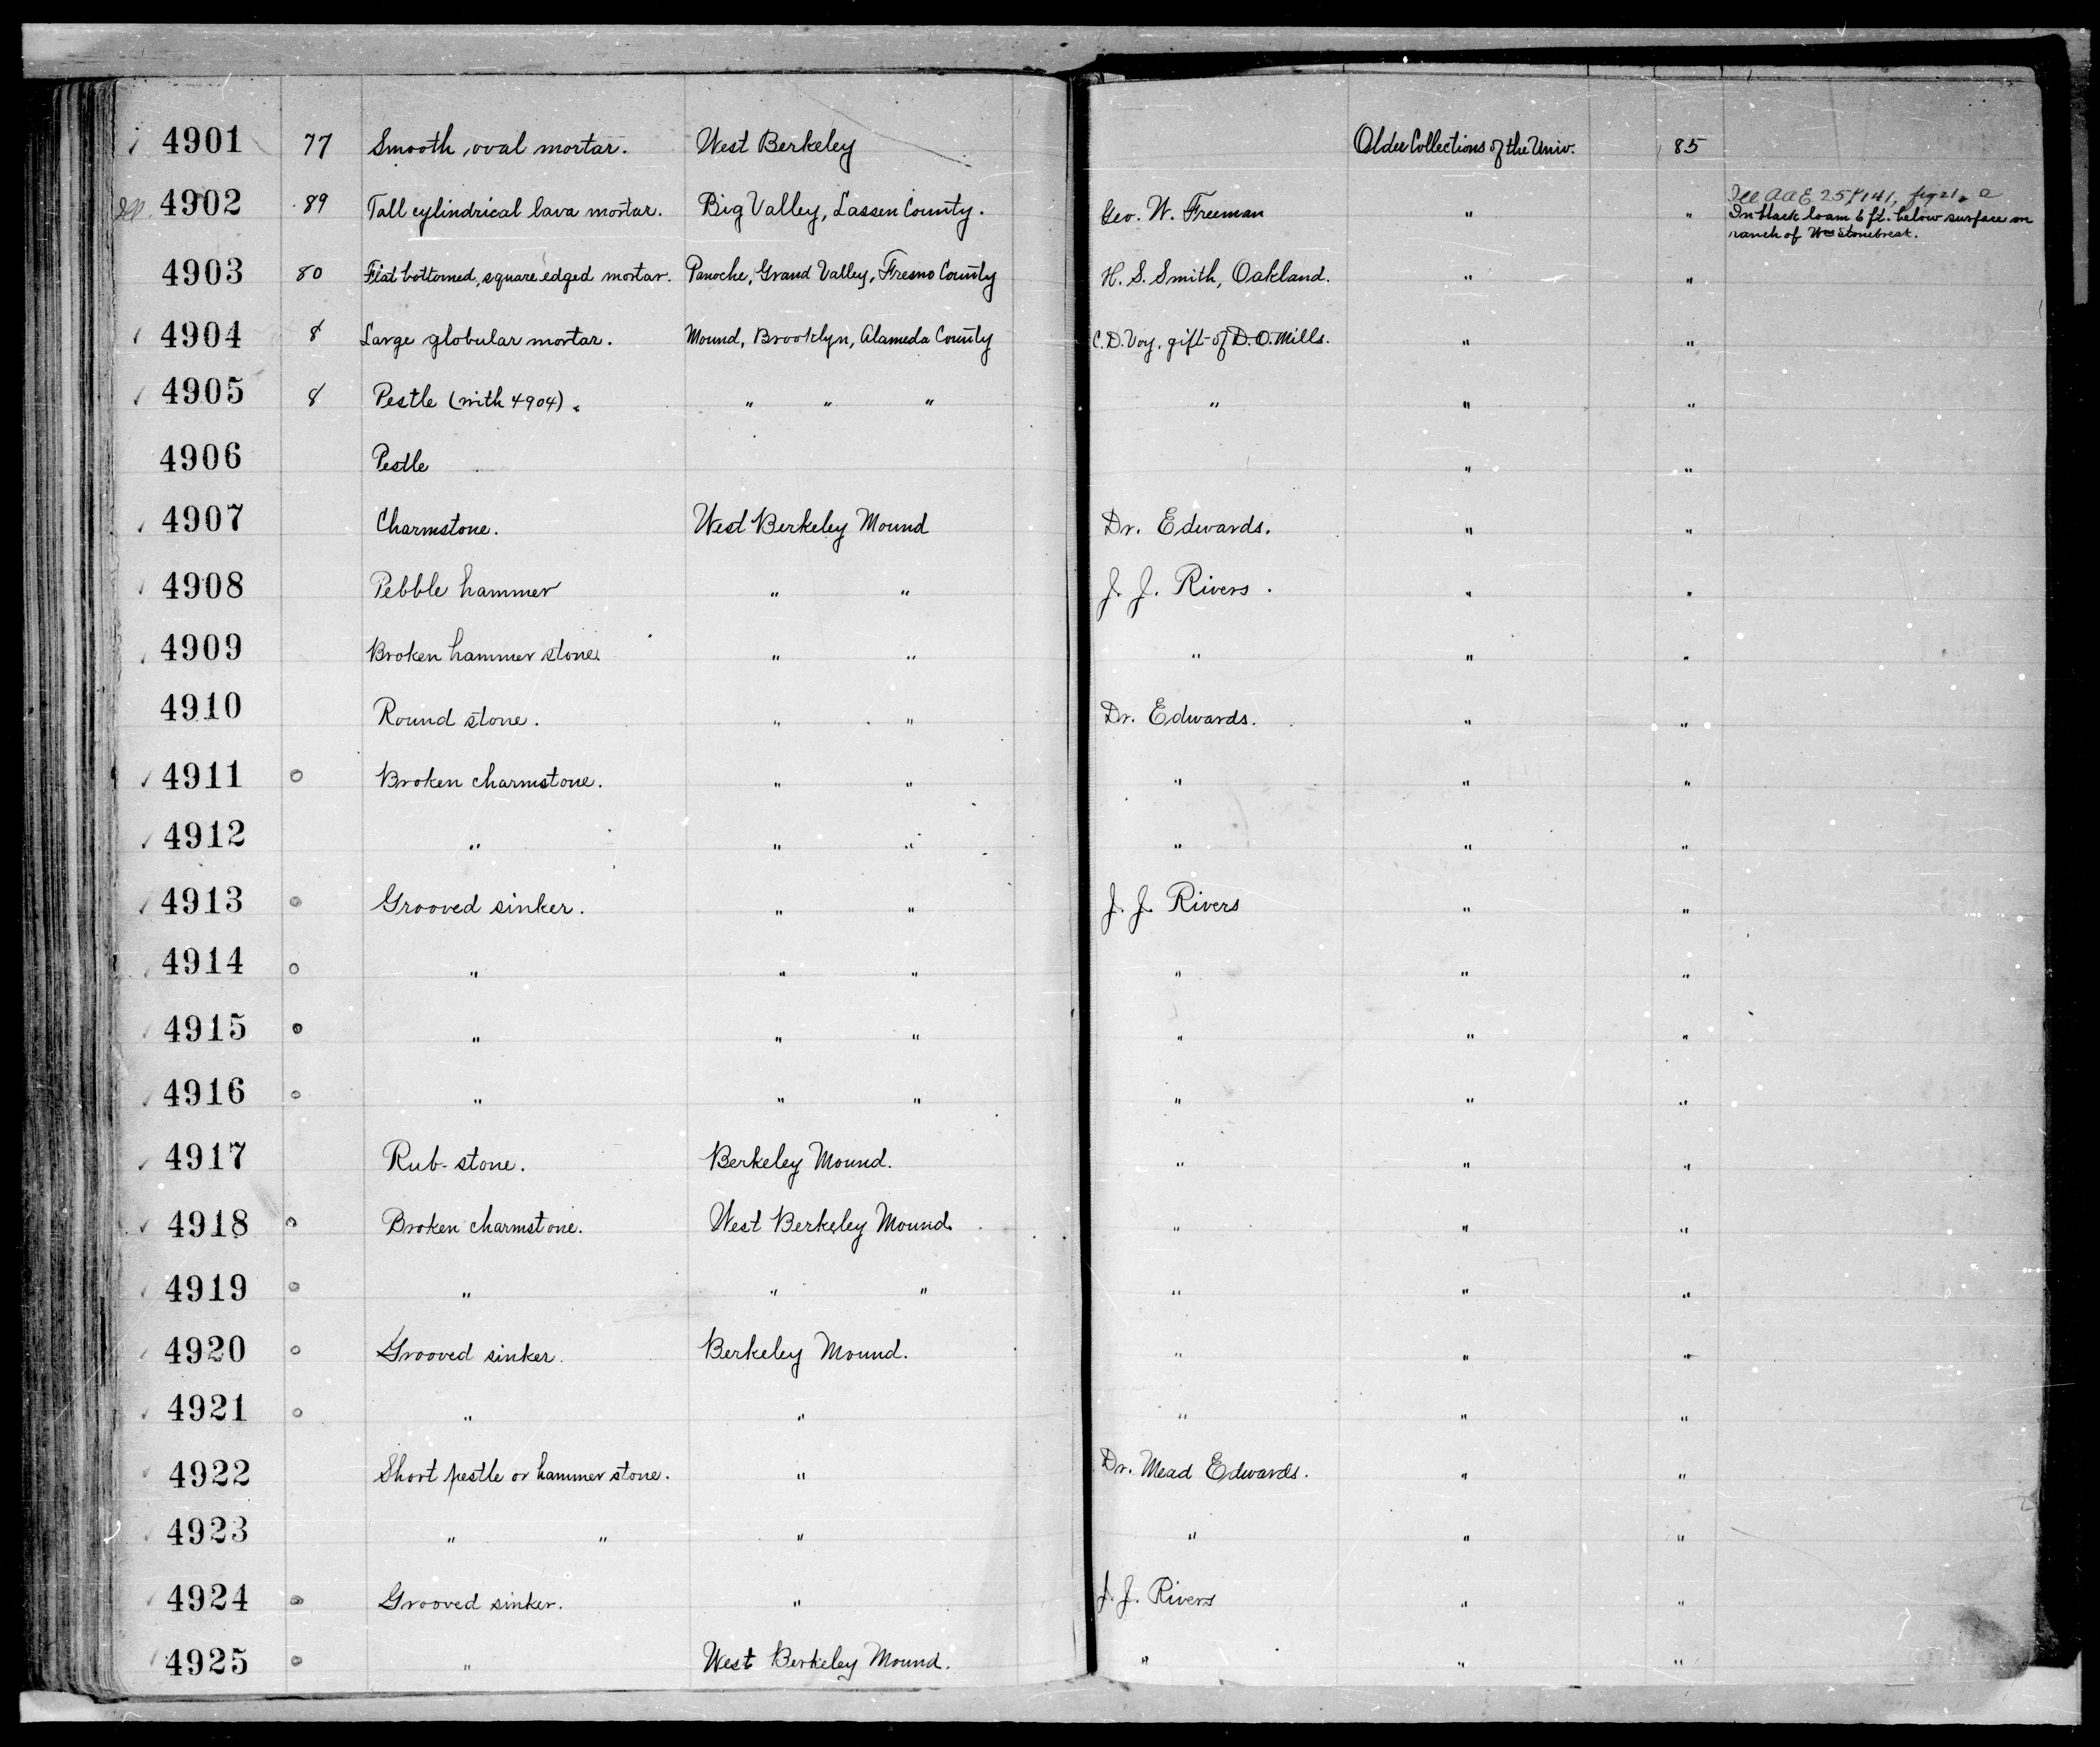 4901 77 Smooth, oval mortar. West Berkeley Older Collections of the Univ. 85
4902 89 Tall cylindrical lava mortar. Big Valley, Lassen County. Geo. W. Freeman " " Ill AAE 25 P141, fig 21, a
In black loam 6 ft. below surface on
ranch of Wm Stonebreak.
4903 80 Flat bottomed, square edged mortar. Panoche, Grand Valley, Fresno County H. S. Smith, Oakland. " "
4904 8 Large globular mortar. Mound, Brooklyn, Alameda County C. D. Voy, gift of D. O. Mills. " "
4905 8 Pestle (with 4904). " " " " " "
4906 Pestle " "
4907 Charmstone. West Berkeley Mound Dr. Edwards. " "
4908 Pebble hammer " " J. J. Rivers. " "
4909 Broken hammer stone. " " " " "
4910 Round stone. " " Dr. Edwards. " "
4911 o Broken charmstone. " " " " "
4912 " " " " " "
4913 o Grooved sinker. " " J. J. Rivers " "
4914 o " " " " " "
4915 o " " " " " "
4916 o " " " " " "
4917 Rub-stone. Berkeley Mound. " " "
4918 o Broken charmstone. West Berkeley Mound. " " "
4919 o " " " " " "
4920 o Grooved sinker. Berkeley Mound. " " "
4921 o " " " " "
4922 Short pestle or hammer stone. " Dr. Mead Edwards. " "
4923 " " " " " "
4924 o Grooved sinker. " J. J. Rivers " "
4925 o " West Berkeley Mound. " " "